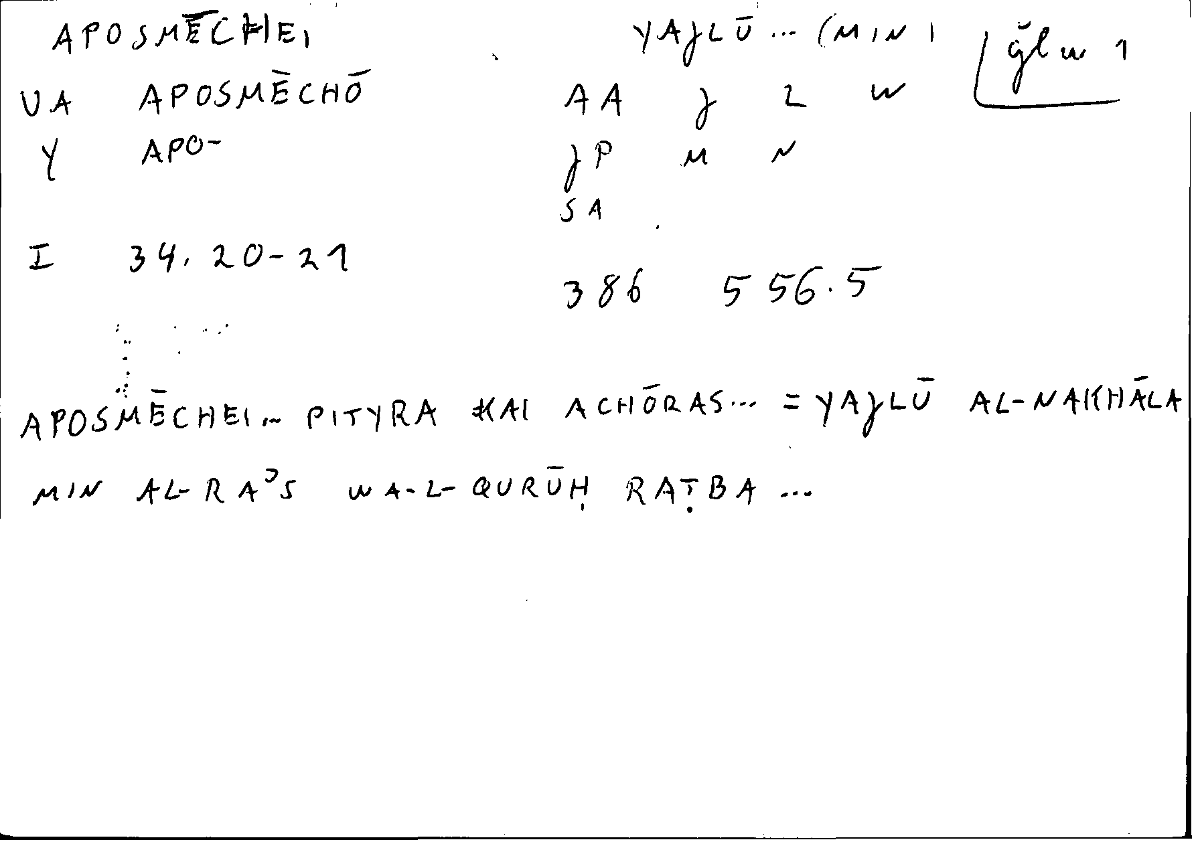 APOSMĒCHEI YAJLŪ ... (MIN) ǧlw 1
VA APOSMĒCHŌ AA J L W
Y APO- JP M N
SA
I 34. 20-21 386 556.5
APOSMĒCHEI ... PITYRA KAI ACHŌRAS ... = YAJLŪ AL-NAKHĀLA
MIN AL-RAʾS WA-L-QURŪḤ RAṬBA ...